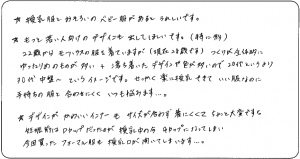 ☆ 授乳服とおそろいのベビー服があるとうれしいです。
☆ もっと若い人向けのデザインも出してほしいです。(特に例)
22歳からモーハウスの服を着ていますが(現在28歳です)つくりが全体的に
ゆったりめのものが多い + 落ち着いたデザインや色が多いので20代というより
30代中盤〜というイメージです。せっかく楽に授乳できていい服なのに
手持ちの服と合わせにくくいつも悩みます…。
☆ デザインがかわいいインナーもサイズが合わず着にくくてちょっと大変です。
妊娠前はDカップだったのが授乳中の今Gカップになってしまい
今回買ったフォーマル服も胸口が開いてしまいます…。